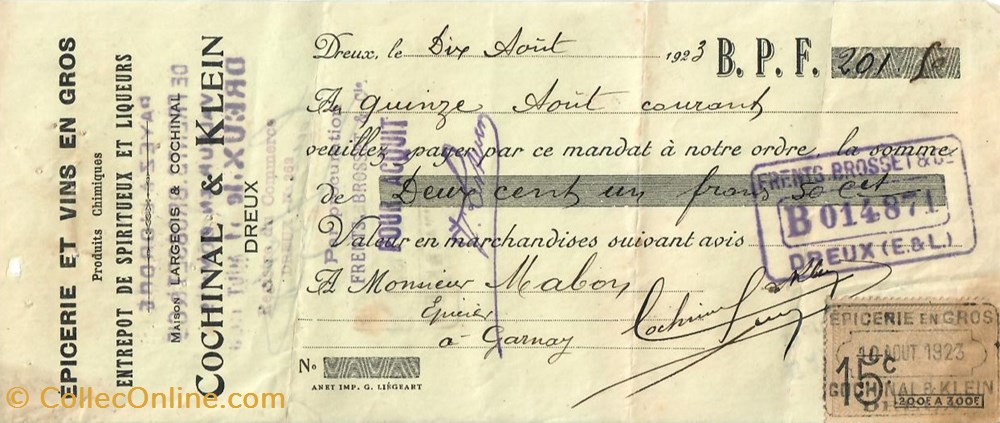 ÉPICERIE ET VINS EN GROS
Produits Chimiques
ENTREPOT DE SPIRITUEUX ET LIQUEURS
MAISON LARGEOIS & COCHINAL
COCHINAL & KLEIN
DREUX
Dreux, le Dix Août 1923 B. P. F. 201.50
Au quinze Août courant
veuillez payer par ce mandat à notre ordre la somme
de Deux cent un francs 50 cet
Valeur en marchandises suivant avis
A Monsieur Mabon
Epicier
à Garnay
No
ANET IMP. G. LIÉGEART
Par Procuration
FRENTS BROSSET & Cie
POUR ACQUIT
FRENTS BROSSET & Cie
B 014871
DREUX (E.&L.)
ÉPICERIE EN GROS
10 AOUT 1923
COCHINAL & KLEIN
15c
200F A 300F
© CollecOnline.com